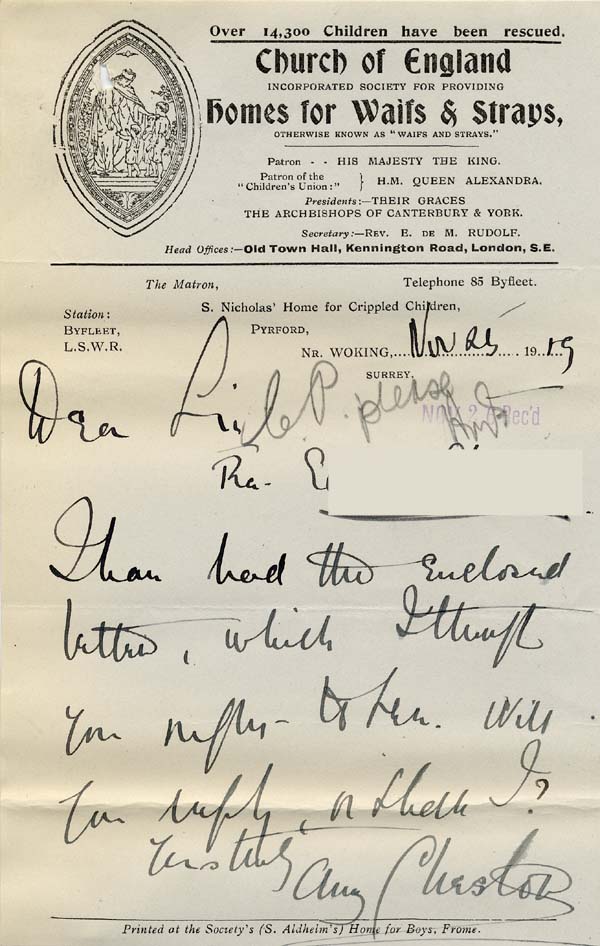 Over 14,300 Children have been rescued.
Church of England
INCORPORATED SOCIETY FOR PROVIDING
Homes for Waifs & Strays,
OTHERWISE KNOWN AS "WAIFS AND STRAYS."
Patron - - HIS MAJESTY THE KING.
Patron of the "Children's Union:" } H.M. QUEEN ALEXANDRA.
Presidents:—THEIR GRACES
THE ARCHBISHOPS OF CANTERBURY & YORK.
Secretary:—REV. E. DE M. RUDOLF.
Head Offices:—Old Town Hall, Kennington Road, London, S.E.
The Matron, Telephone 85 Byfleet.
S. Nicholas' Home for Crippled Children,
Station:
BYFLEET,
L.S.W.R.
PYRFORD,
NR. WOKING,.... Nov 25 ....19..19
SURREY.
Dear Sir
please
NOV 26 Rec'd
Re- E
I have had the enclosed
letter, which I thought
you ought to see. Will
you reply, or shall I?
Yours truly
Amy Cheston
Printed at the Society's (S. Aldhelm's) Home for Boys, Frome.